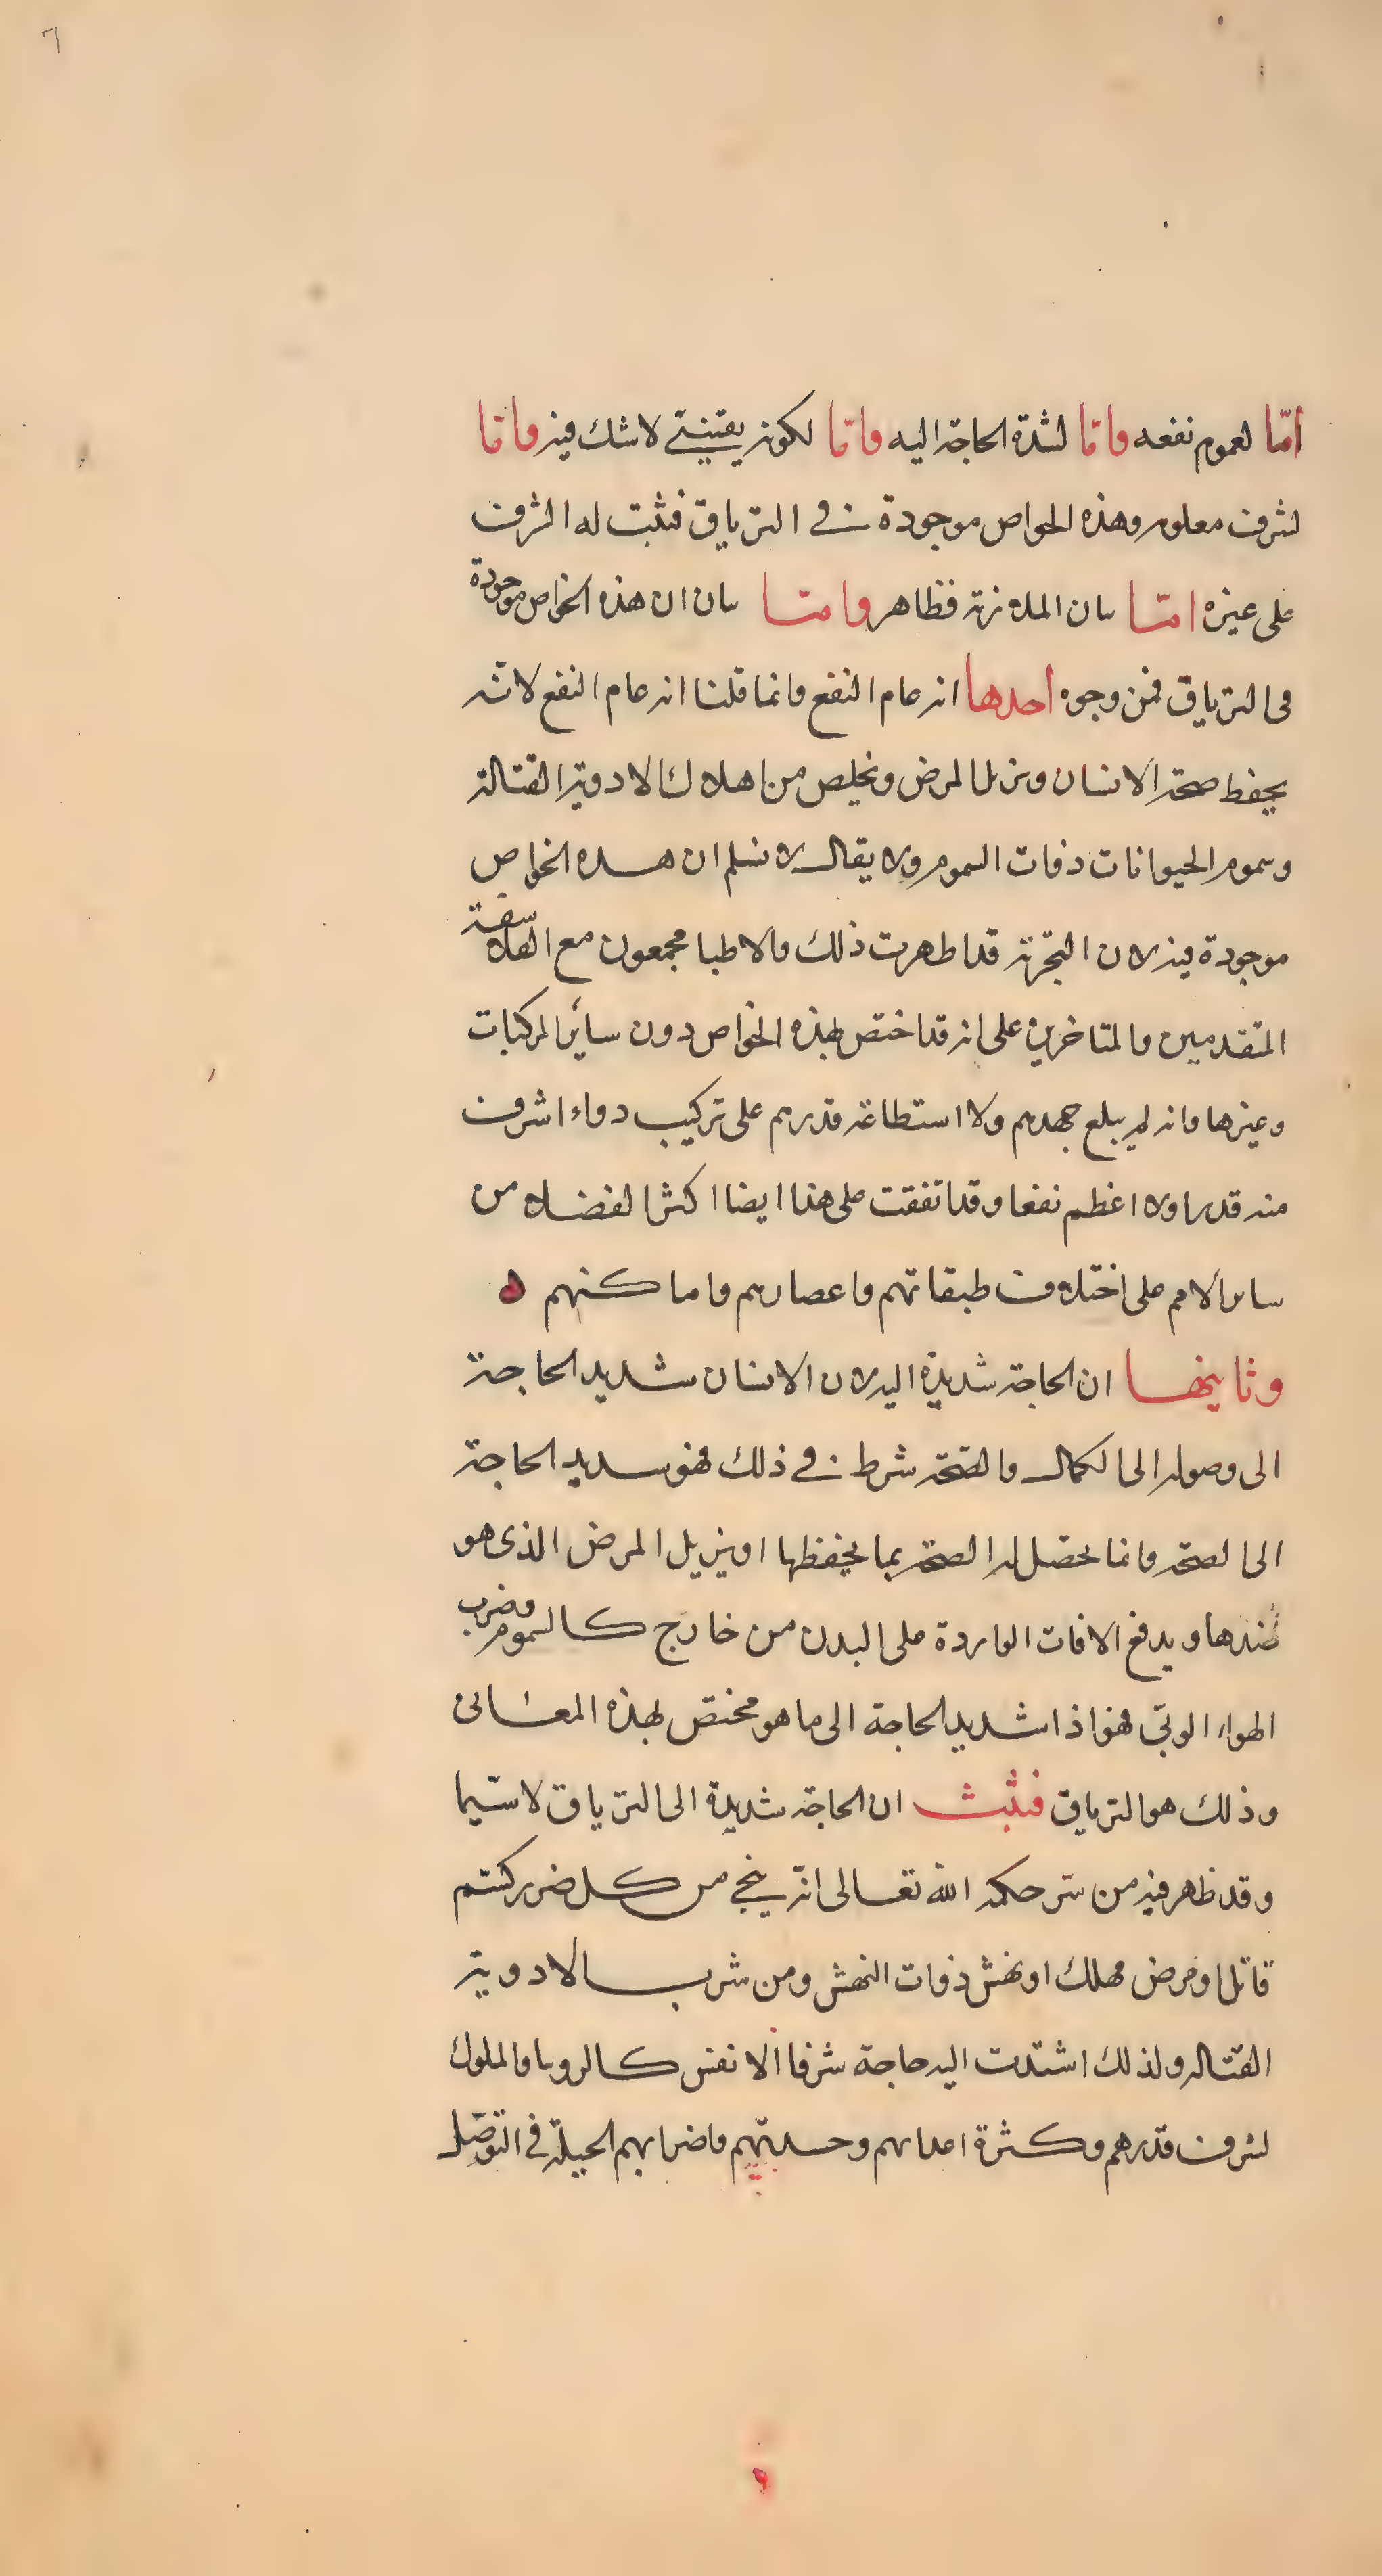 ٦
امّا لعموم نفعه وامّا لشدة الحاجة اليه وامّا لكونه يقينيّ لا شك فيه وامّا
لشرف معلوم وهذه الخواص موجودة في الترياق فثبت له الشرف
على غيره امّا بيان الملازمة فظاهر وامّا بيان ان هذه الخواص موجودة
فى الترياق فمن وجوه احدها انه عام النفع وانما قلنا انه عام النفع لانّه
يحفظ صحة الانسان ويزيل المرض ويخلص من اهلاك الادوية القتالة
وسموم الحيوانات ذوات السموم ولا يقال لا نسلم ان هذه الخواص
موجودة فيه لان التجربة قد اظهرت ذلك والاطبا مجمعون مع الفلاسفة
المتقدمين والمتاخرين على انه قد اختص بهذه الخواص دون سائر المركبات
وغيرها وانه لم يبلغ جهدهم ولا استطاعة قدرهم على تركيب دواء اشرف
منه قدرا ولا اعظم نفعا وقد اتفقت على هذا ايضا اكثر الفضلاء من
ساير الامم على اختلاف طبقاتهم واعصارهم واماكنهم
وثانيها ان الحاجة شديدة اليه لان الانسان شديد الحاجة
الى وصوله الى الكمال والصّحّة شرط في ذلك فهو شديد الحاجة
الى الصحّة وانما يحصّل له الصحّة بما يحفظها او يزيل المرض الذى هو
ضدها ويدفع الافات الواردة على البدن من خارج كالسموم وضرب
الهواء الوبىّ فهو اذا شديد الحاجة الى ما هو مختصّ بهذه المعانى
وذلك هو الترياق فثبت ان الحاجة شديدة الى الترياق لا سيّما
وقد ظهر فيه من سّر حكمة الله تعالى انّه ينجي من كل ضرر كسّم
قاتل او مرض مهلك او نهش ذوات النهش ومن شرب الادوية
القتاله ولذلك اشتدت اليه حاجة شرفا الانفس كالروسا والملوك
لشرف قدرهم وكثرة اعدائهم وحسدتهم واضرابهم الحيلة في التوصّل